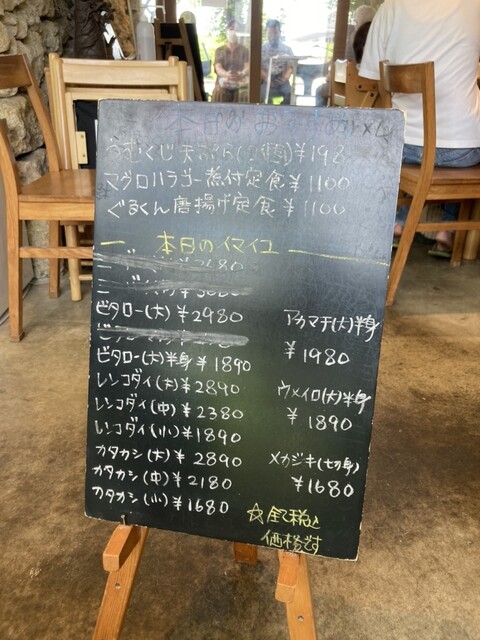 本日のおすすめメニュー
うむくじ天ぷら(2個)¥198
マグロハラゴー煮付定食 ¥1100
ぐるくん唐揚げ定食 ¥1100
本日のイマイユ
ビタロー(大)¥2980
ビタロー(大)半身 ¥1890
レンコダイ(大)¥2890
レンコダイ(中)¥2380
レンコダイ(小)¥1890
カタカシ(大)¥2890
カタカシ(中)¥2180
カタカシ(小)¥1680
アカマチ(大)半身
¥1980
ウメイロ(大)半身
¥1890
メカジキ(切身)
¥1680
☆全て税込
価格です